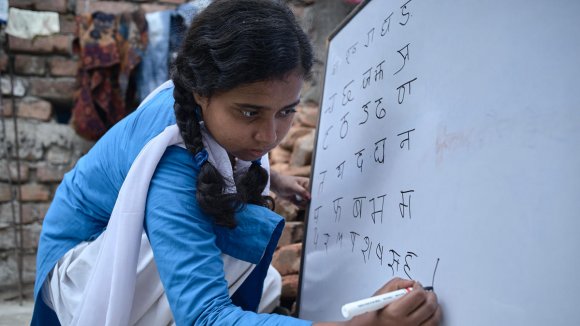 क ख ग घ ङ
च छ ज झ ञ
ट ठ ड ढ ण
त थ द ध न
प फ ब भ म
य र ल व श ष स ह